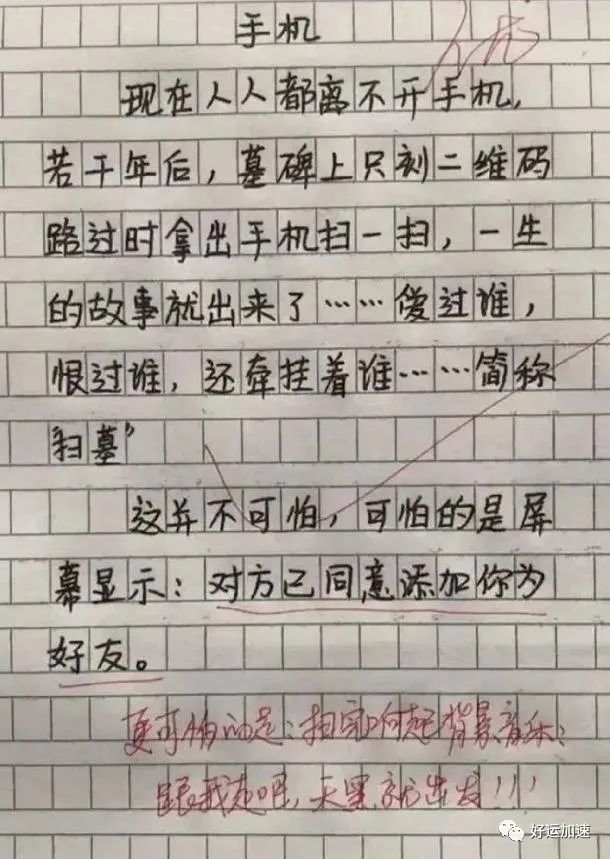 手机
现在人人都离不开手机,
若干年后，墓碑上只刻二维码
路过时拿出手机扫一扫，一生
的故事就出来了……爱过谁，
恨过谁，还牵挂着谟……简称
“扫墓”
这并不可怕，可怕的是屏
幕显示：对方已同意添加你为
好友。
更可怕的是：扫完响起背景音乐：
跟我走吧，天黑就出发!!!
好运加速